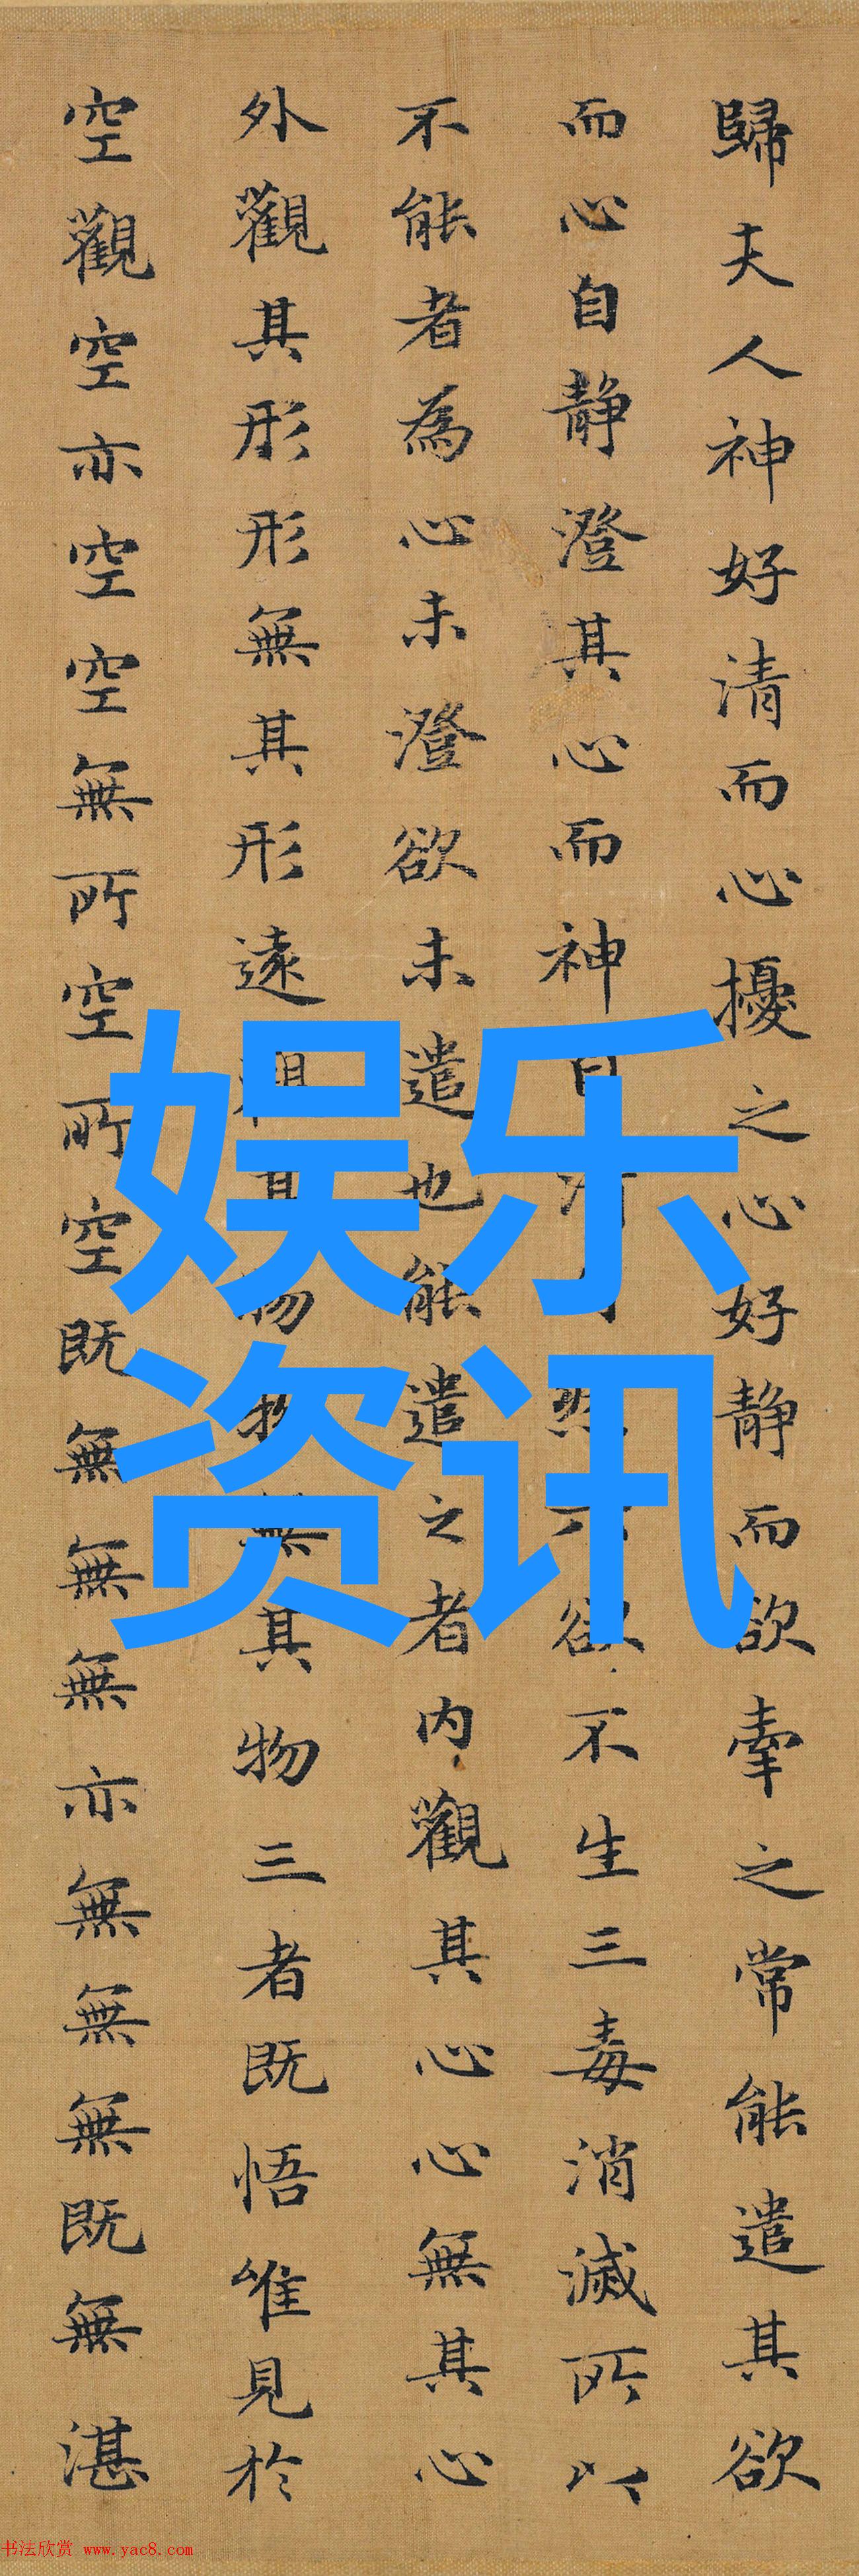 歸夫人神好清而心擾之心好静而欲牽之常能遣其欲
而心自静澄其心而神欲不生三毒消滅所以
不能者為心未澄欲未遣也能遣之者内觀其心心無其心
外觀其形形無其形遠物無其物三者既悟唯見於
空觀空亦空空無所空所空既無無無亦無無無既無湛
娱乐
资讯
书法欣赏 www.yac8.com